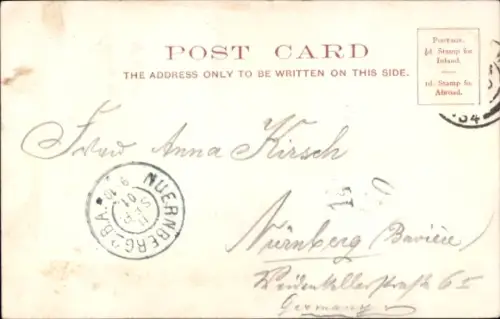 POST CARD
THE ADDRESS ONLY TO BE WRITTEN ON THIS SIDE.
Postage.
½d Stamp for
Inland.
1d. Stamp for
Abroad.
54
Frau Anna Kirsch
NUERNBERG 2 B.A.
SEP
01
Nürnberg (Bavière)
Weidenkellerstraße 6 I
Germany